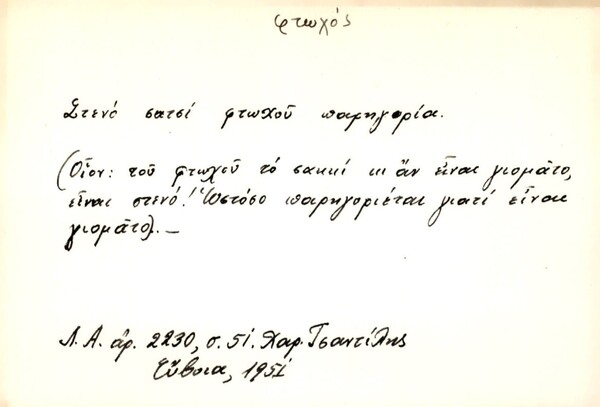 φτωχός
Στενό σατσί φτωχοῦ παρηγορία.
(Οἷον: τοῦ φτωχοῦ τό σακκί κι ἄν εἶναι γιομᾶτο,
εἶναι στενό! Ὡστόσο παρηγοριέται γιατί εἶναι
γιομᾶτο).—
Λ.Α. ἀρ. 2230, σ. 51. Χαρ. Τσαντίλης
Εὔβοια, 1951